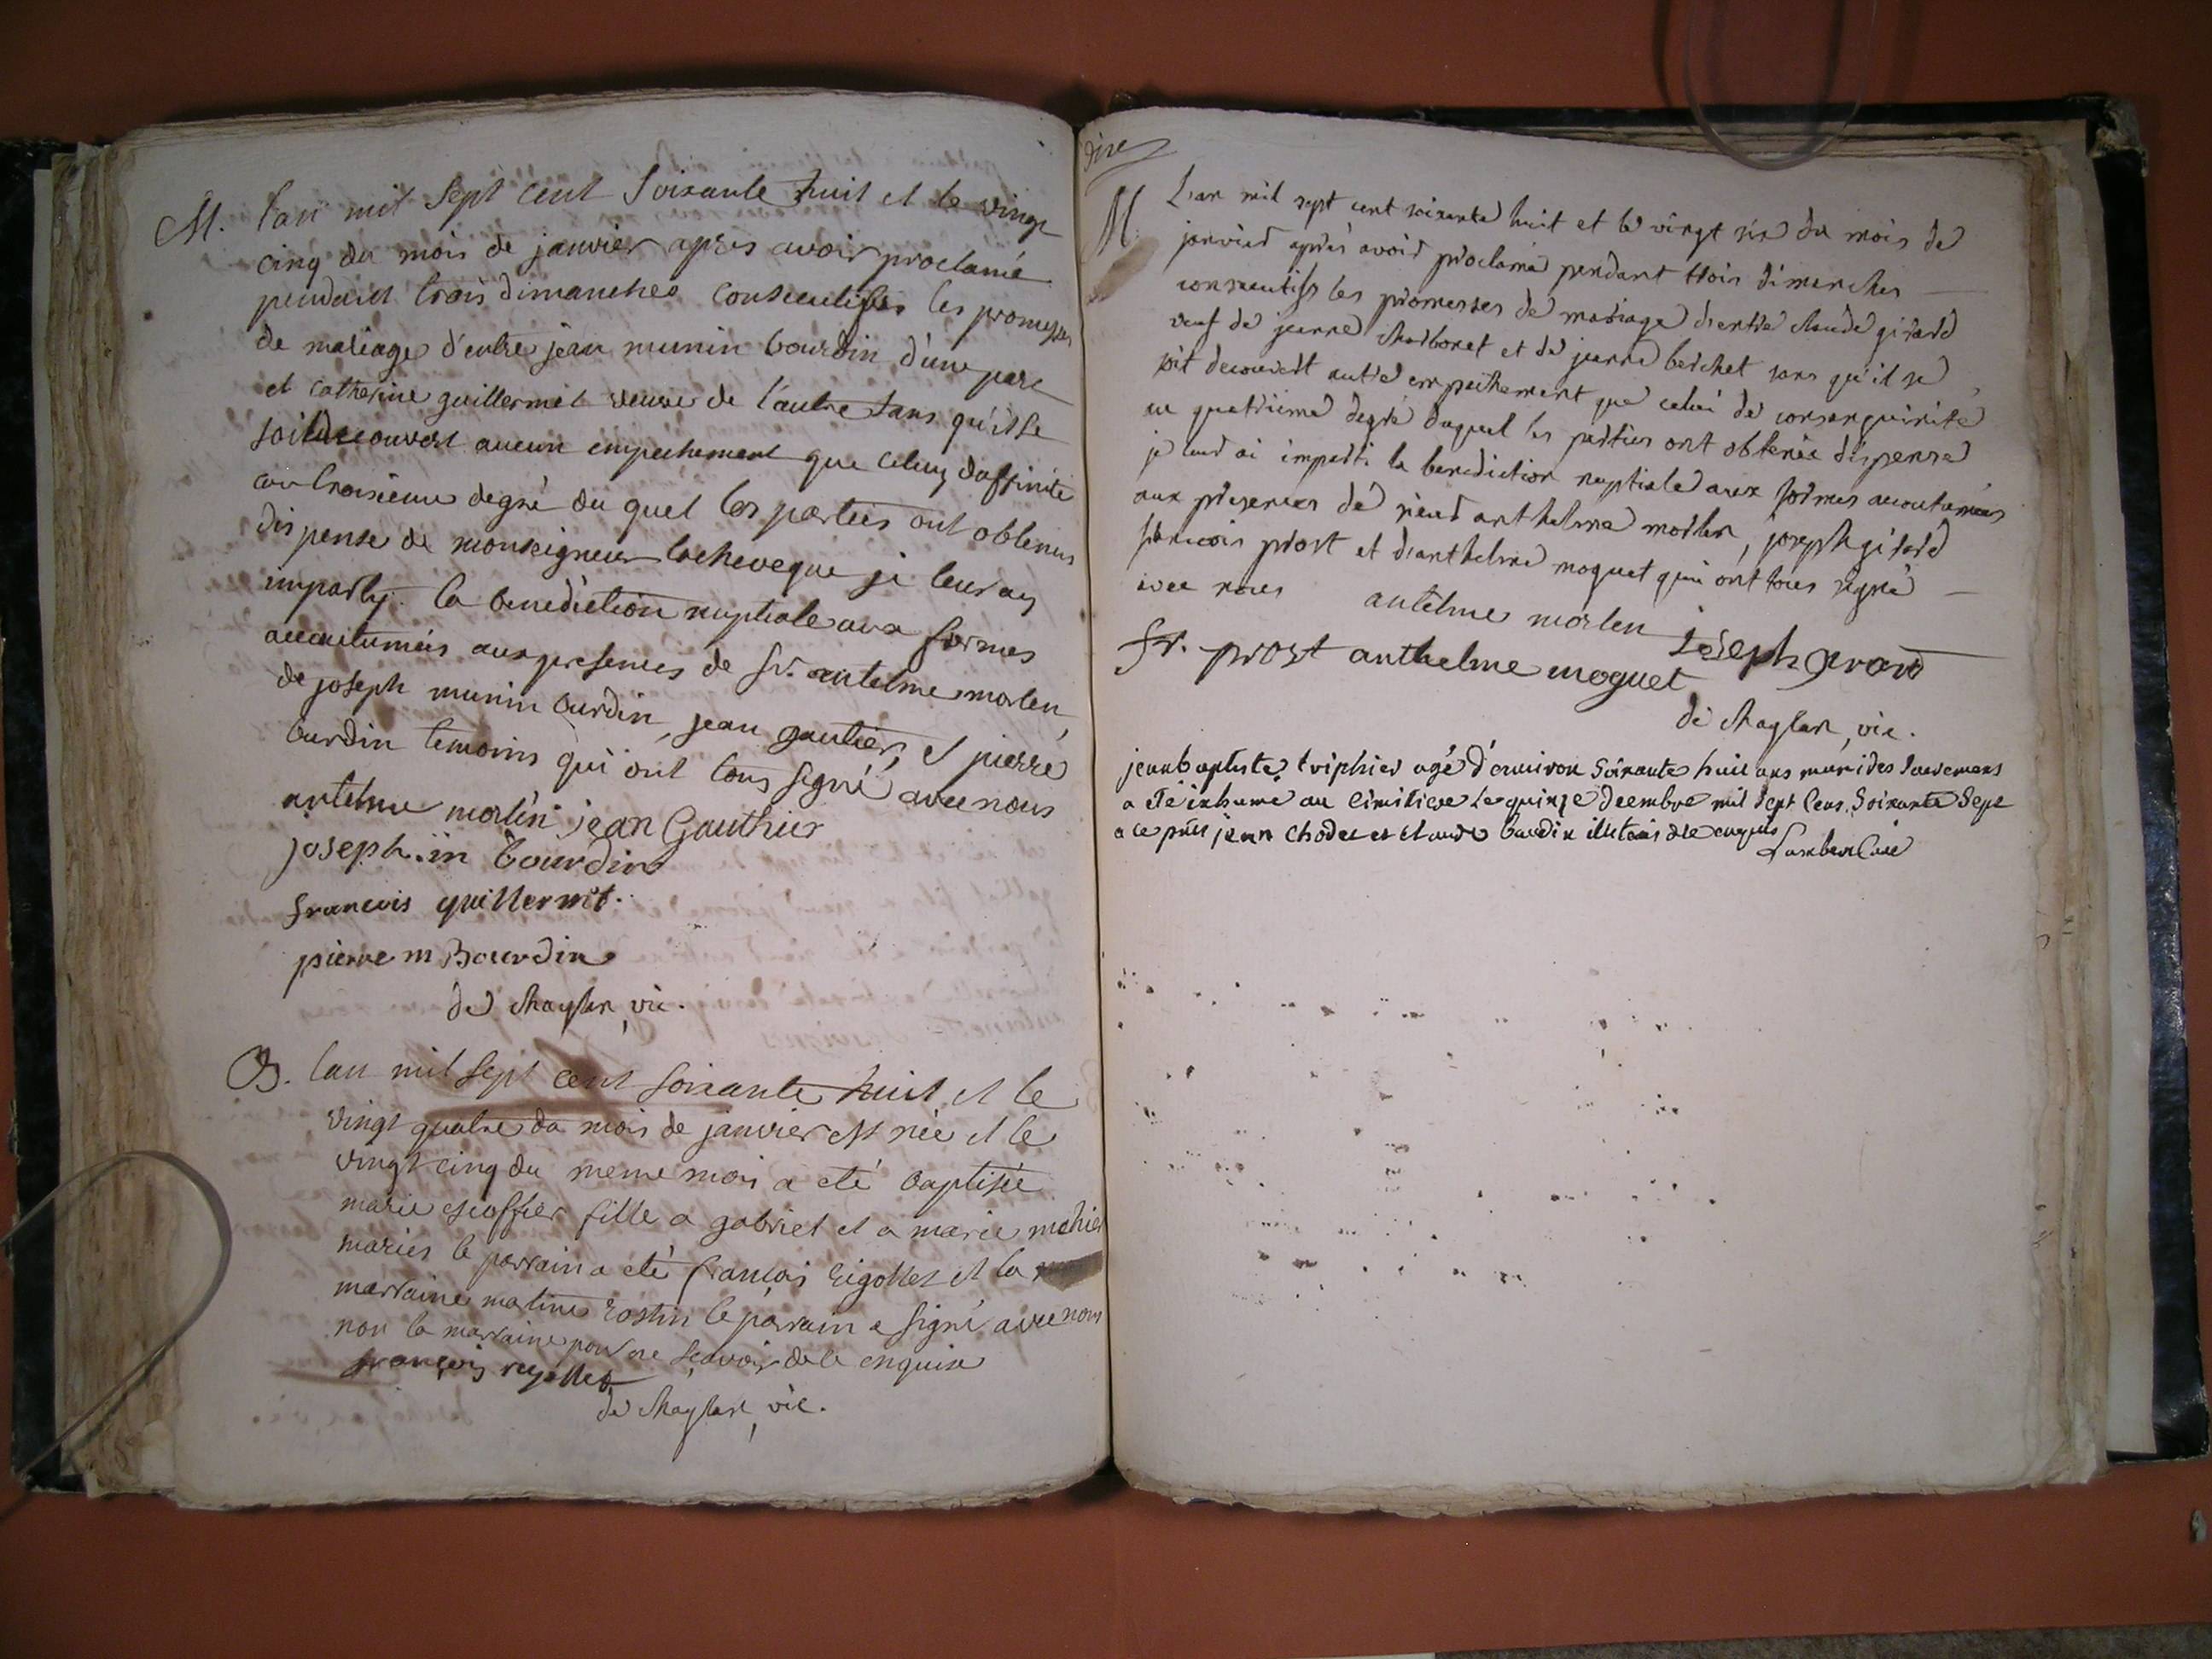 M. l'an mil sept cent soixante huit et le vingt
cinq du mois de janvier apres avoir proclamé
pendant trois dimanches consecutifs les promesses
de mariage d'entre jean munin bourdin d'une part
et catherine guillermet veuve de l'autre sans qu'il se
soit decouvert aucun empechement que celuy d'affinité
au troisieme degré du quel les parties ont obtenus
dispense de monseigneur l'acheveque je leur ay
imparty la benediction nuptiale aux formes
accoutumées aux presences de sr. antelme morlen,
de joseph munin burdin, jean gautier, et pierre
burdin temoins qui ont tous signé avec nous
antelme morlen jean Gauthier
joseph bourdin
francois guillermet.
pierre m Bourdin
de Maglan, vic.
B. l'an mil sept cent soixante huit et le
vingt quatre du mois de janvier est née et le
vingt cinq du meme mois a eté baptisée
marie fille a gabriel et a marie
mariés le parrain a eté françois rigollet et la
marraine rostin le parrain a signé avec nous
non la marraine pour ne sçavoir de le enquise
françois rigollet
de Maglan, vic.
dire
M. L'an mil sept cent soixante huit et le vingt six du mois de
janvier après avoir proclamé pendant trois dimanches
consecutifs les promesses de mariage d'entre claude girard
veuf de jeanne charbonet et de jeanne berchet sans qu'il se
soit decouvert autre empechement que celui de consanguinité
au quatrieme degré duquel les parties ont obtenüe dispense
je leur ai imparti la benediction nuptiale aux formes accoutumées
aux presences de sieur anthelme morlen, joseph girard
francois prost et d'anthelme moguet qui ont tous signé
avec nous antelme morlen joseph girard
fr. prost anthelme moguet
de Maglan, vic.
jean baptiste triphier agé d'environ soixante huit ans muni des sacremens
a eté inhumé au cimitiere le quinze decembre mil sept cens soixante sept
a ce pnts jean chodet et claude burdin illiterés de enquis
Lambert curé